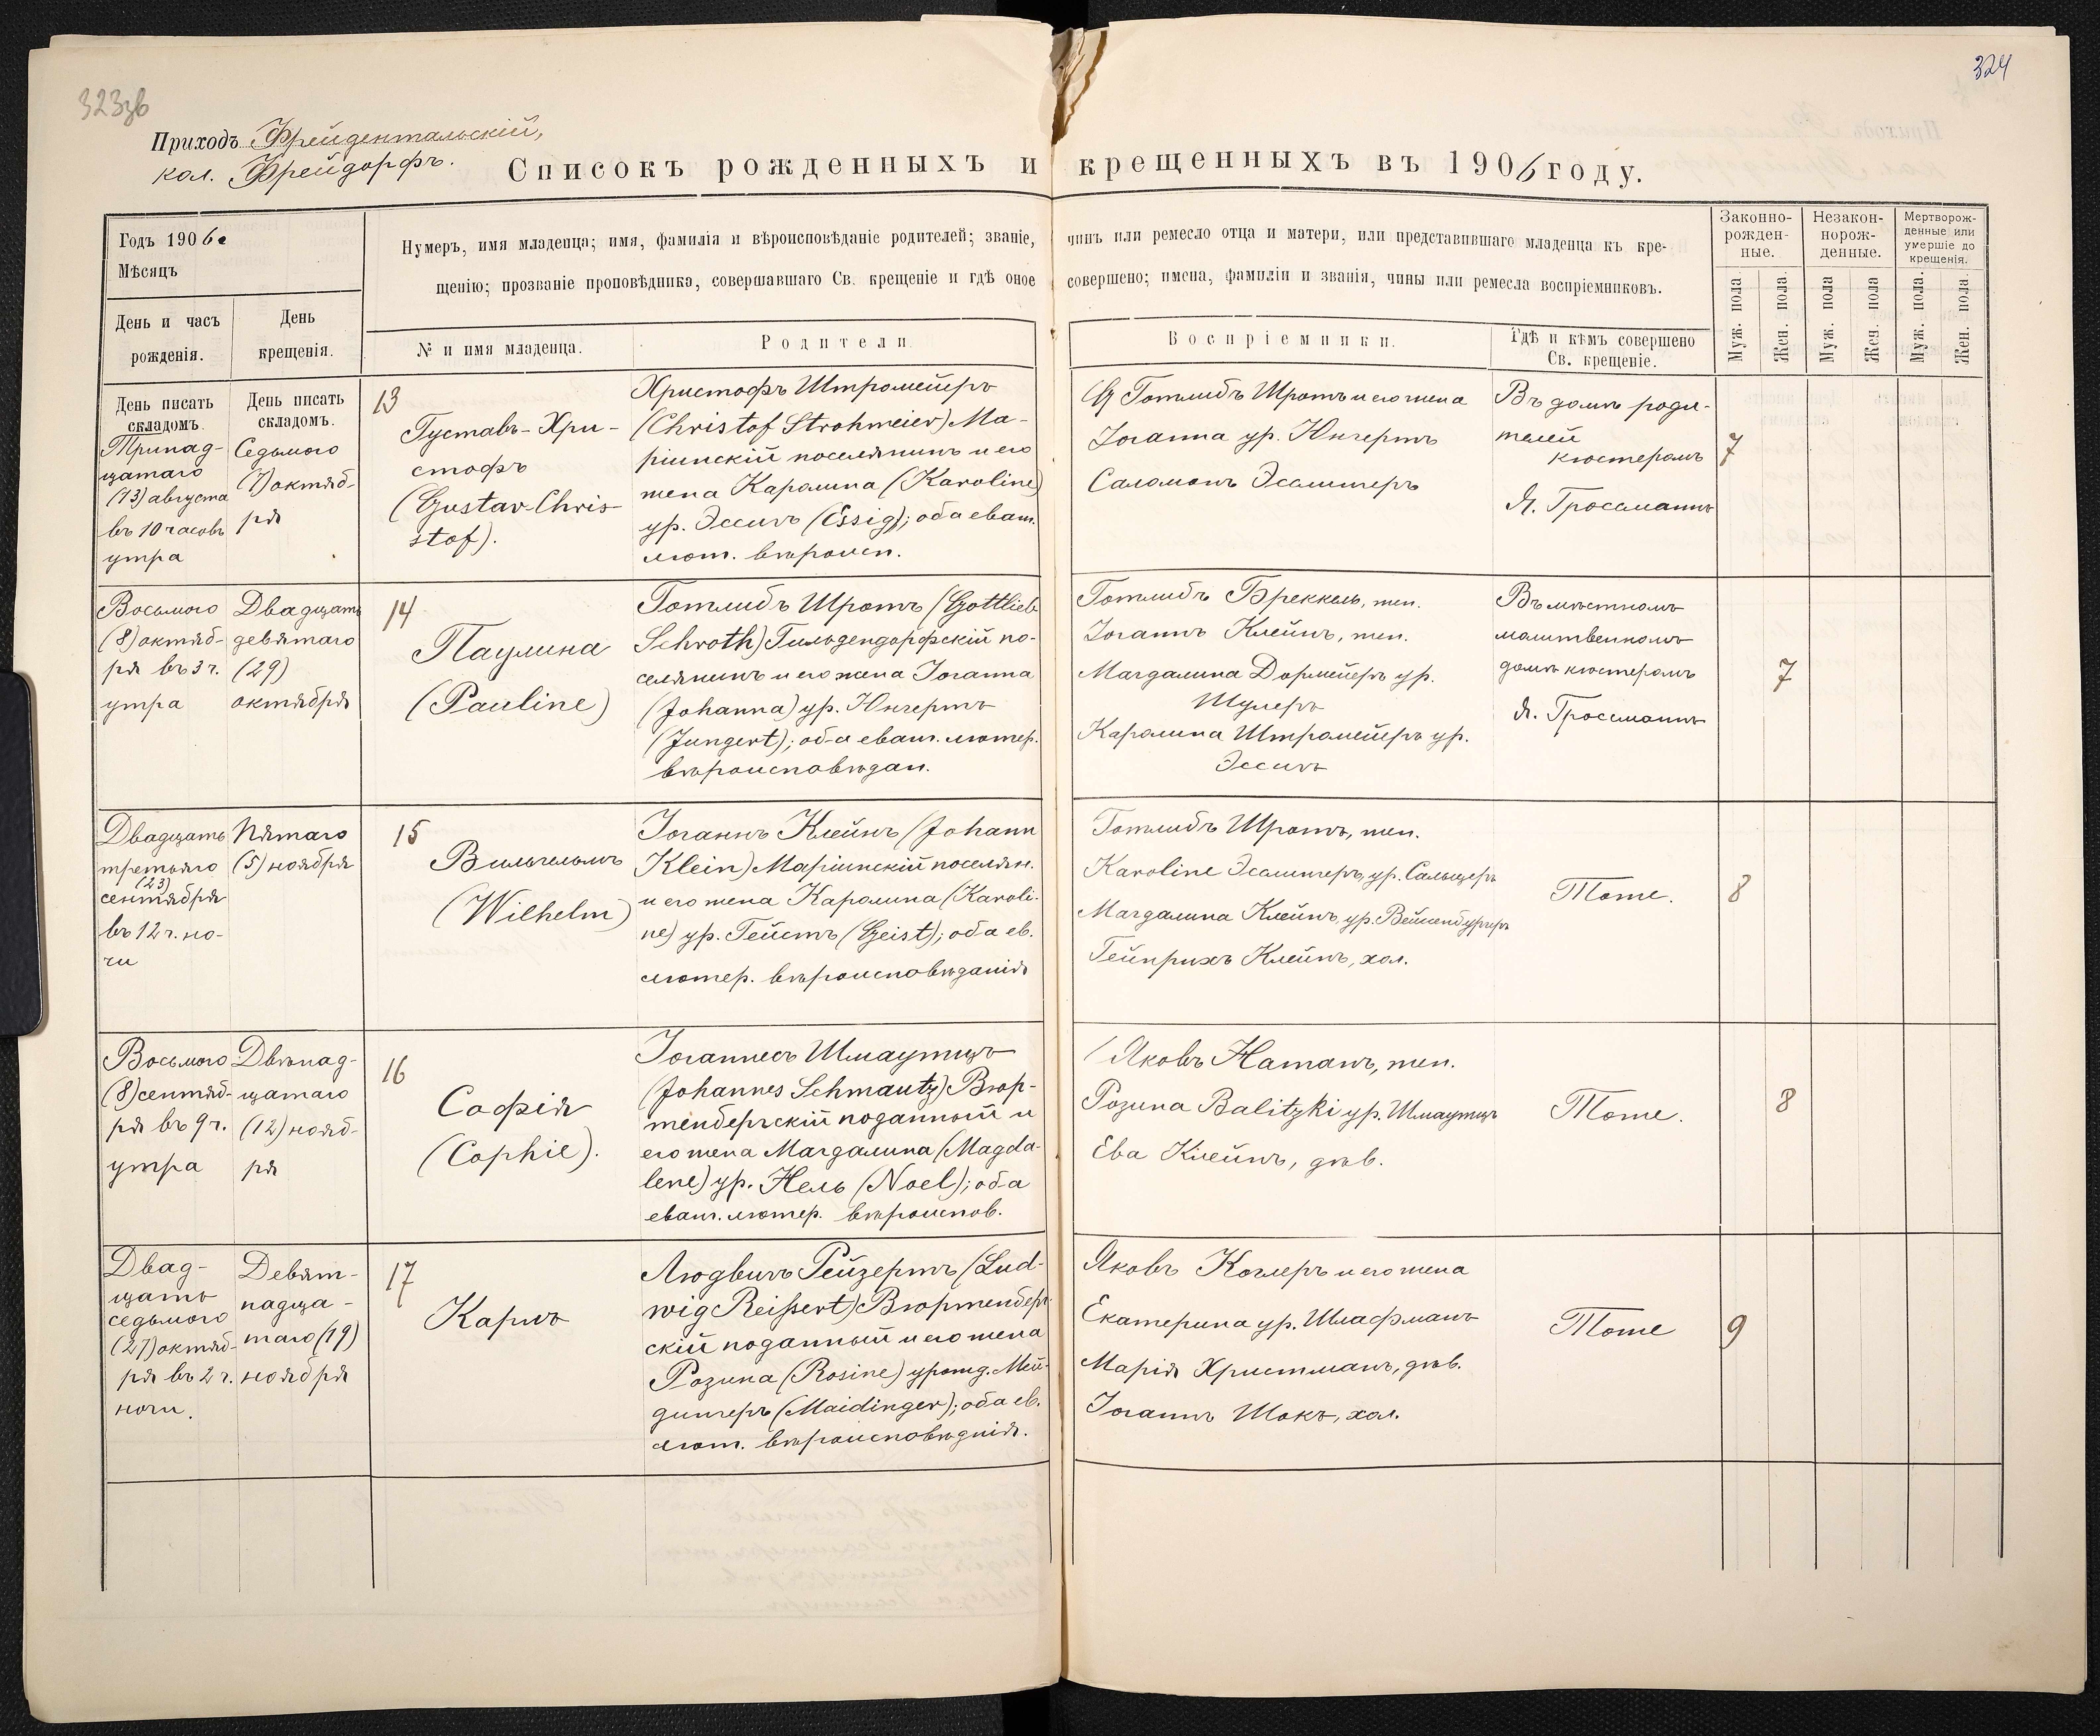 323зв
324
Приходъ Фрейдентальскій,
кол. Фрейдорфъ.
Списокъ рожденныхъ и крещенныхъ въ 1906 году.
Годъ 1906 г
Мѣсяцъ
День и часъ
рожденія.
День
крещенія.
Нумеръ, имя младенца; имя, фамилія и вѣроисповѣданіе родителей; званіе, чинъ или ремесло отца и матери, или представившаго младенца къ кре-
щенію; прозваніе проповѣдника, совершавшаго Св. крещеніе и гдѣ оное совершено; имена, фамиліи и званія, чины или ремесла воспріемниковъ.
№ и имя младенца.
Родители
Воспріемники.
Гдѣ и кѣмъ совершено
Св. крещеніе.
Законно-
рожден-
ные.
Незакон-
норож-
денные.
Мертворож-
денные или
умершіе до
крещенія.
Муж. пола.
Жен. пола.
Муж. пола
Жен. пола
Муж. пола.
Жен. пола.
День писать
складомъ.
День писать
складомъ.
Тринад-
цатаго
(13) августа
въ 10 часовъ
утра
Седьмого
(7) октяб-
ря
13
Густавъ-Хри-
стофъ
(Gustav-Chris-
stof).
Христофъ Штромейеръ
(Christof Strohmeier) Ма-
ріинскій поселянинъ и его
жена Каролина (Karoline)
ур. Эссигъ (Essig); оба еванг.
лют. вѣроисп.
Готлибъ Шротъ и его жена
Іоганна ур. Юнгертъ
Саломонъ Эсслингеръ
Въ домѣ роди-
телей
кюстеромъ
Я. Гроссманнъ
7
Восьмого
(8) октяб-
ря въ 3 ч.
утра
Двадцать
девятаго
(29)
октября
14
Паулина
(Pauline)
Готлибъ Шротъ (Gottlieb
Schroth) Гильдендорфскій по-
селянинъ и его жена Іоганна
(Johanna) ур. Юнгертъ
(Jungert); оба еванг. лютер.
вѣроисповѣдан.
Готлибъ Бреккель, жен.
Іоганнъ Клейнъ, жен.
Магдалина Дормейеръ ур.
Шулеръ
Каролина Штромейеръ ур.
Эссигъ
Въ мѣстномъ
молитвенномъ
домѣ кюстеромъ
Я. Гроссманнъ
7
Двадцать
третьяго
(23)
сентября
въ 12 ч. но-
чи
Пятаго
(5) ноября
15
Вильгельмъ
(Wilhelm)
Іоганнъ Клейнъ (Johann
Klein) Маріинскій поселян.
и его жена Каролина (Karoli-
ne) ур. Гейстъ (Geist); оба ев.
лютер. вѣроисповѣданія
Готлибъ Шротъ, жен.
Karoline Эсслингеръ, ур. Сальцеръ
Магдалина Клейнъ, ур. Вейсенбургеръ
Гейнрихъ Клейнъ, хол.
Тоже.
8
Восьмого
(8) сентяб-
ря въ 9 ч.
утра
Двѣнад-
цатаго
(12) нояб-
ря
16
Софія
(Cophie).
Іоганнесъ Шмаутцъ
(Johannes Schmautz) Вюр-
тенбергскій поданный и
его жена Магдалина (Magda-
lene) ур. Нель (Noel); оба
еванг. лютер. вѣроиспов.
Яковъ Натанъ, жен.
Розина Balitzki ур. Шмаутцъ
Ева Клейнъ, дѣв.
Тоже.
8
Двад-
цать
седьмого
(27) октяб-
ря въ 2 ч.
ночи.
Девят-
надца-
таго (19)
ноября
17
Карлъ
Людвигъ Рейзертъ (Lud-
wig Reißert) Вюртенберг-
скій поданный и его жена
Розина (Rosine) урожд. Мей-
дингеръ (Maidinger); оба ев.
лют. вѣроисповѣднія.
Яковъ Коглеръ и его жена
Екатерина ур. Шлафманъ
Марія Христманъ, дѣв.
Іоганнъ Шокъ, хол.
Тоже
9